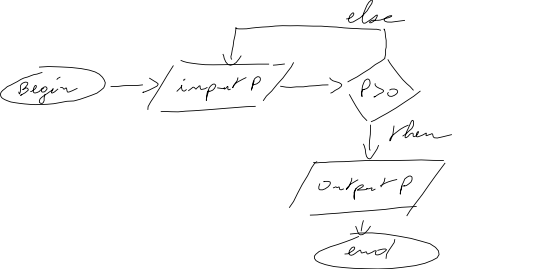 else
Begin
input P
P>0
then
output P
end